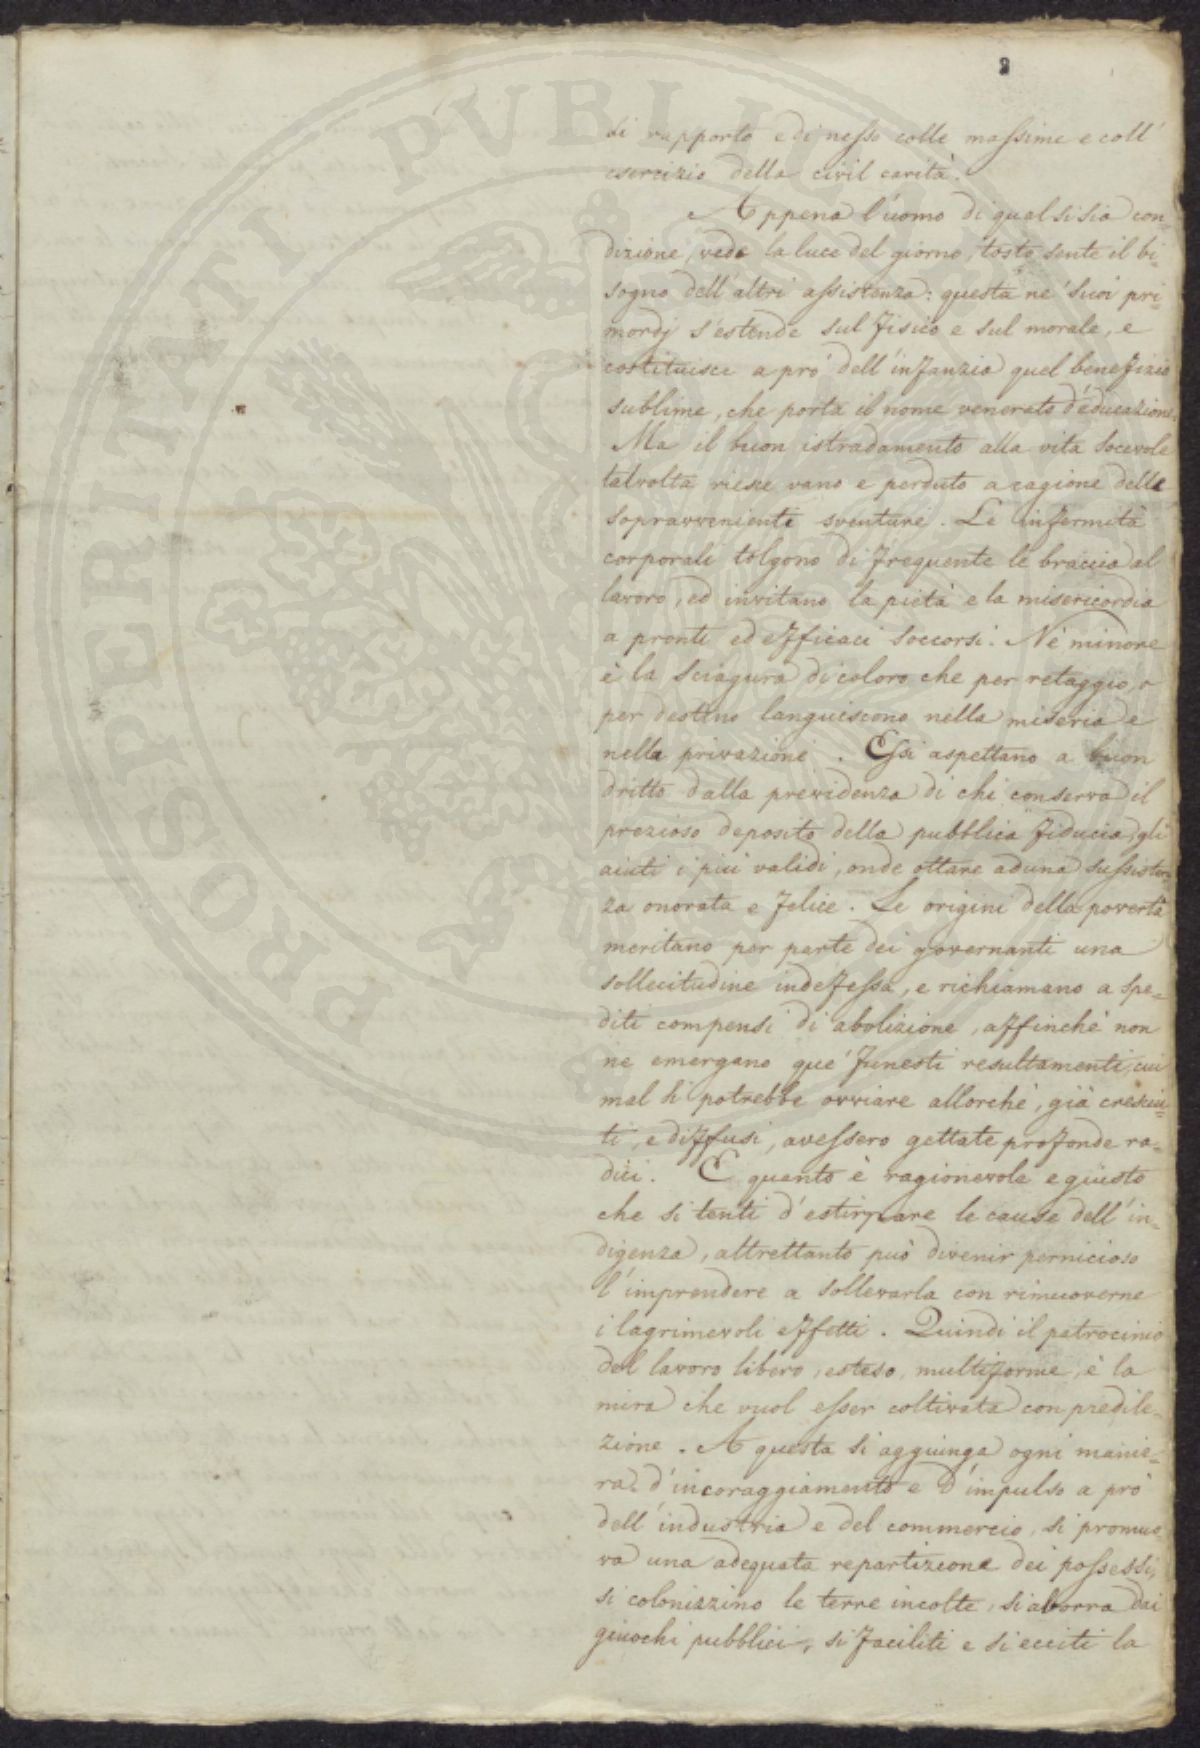 PROSPERITATI PUBLI
di rapporto e di nesso colle massime e coll'
esercizio della civil carità.
Appena l'uomo di qualsisia con=
dizione, vede la luce del giorno, tosto sente il bi=
sogno dell'altri assistenza: questa ne' suoi pri=
mordj s'estende sul fisico e sul morale, e
costituisce a prò dell'infanzia quel benefizio
sublime, che porta il nome venerato d'educazione.
Ma il buon istradamento alla vita socevole
talvolta riesce vano e perduto a cagione delle
sopravvenienti sventure. Le infermità
corporali tolgono di frequente le braccia al
lavoro, ed invitano la pietà e la misericordia
a pronti ed efficaci soccorsi. Nè minore
è la sciagura di coloro che per retaggio, o
per destino languiscono nella miseria e
nella privazione. Essi aspettano a buon
dritto dalla previdenza di chi conserva il
prezioso deposito della pubblica fiducia, gli
aiuti i più validi, onde ottare ad una sussisten=
za onorata e felice. Le origini della povertà
meritano per parte dei governanti una
sollecitudine indefessa, e richiamano a spe=
diti compensi di abolizione, affinchè non
ne emergano que' funesti resultamenti, cui
mal si potrebbe ovviare allorchè, già cresciu=
ti, e diffusi, avessero gettate profonde ra=
dici. E quanto è ragionevole e giusto
che si tenti d'estirpare le cause dell'in=
digenza, altrettanto può divenir pernicioso
l'imprendere a sollevarla con rimuoverne
i lagrimevoli effetti. Quindi il patrocinio
del lavoro libero, esteso, multiforme, è la
mira che vuol esser coltivata con predile=
zione. A questa si aggiunga ogni manie=
ra d'incoraggiamento e d'impulso a prò
dell'industria e del commercio, si promuo
va una adequata repartizione dei possessi,
si colonizzino le terre incolte, si aborra dai
giuochi pubblici, si faciliti e si ecciti la